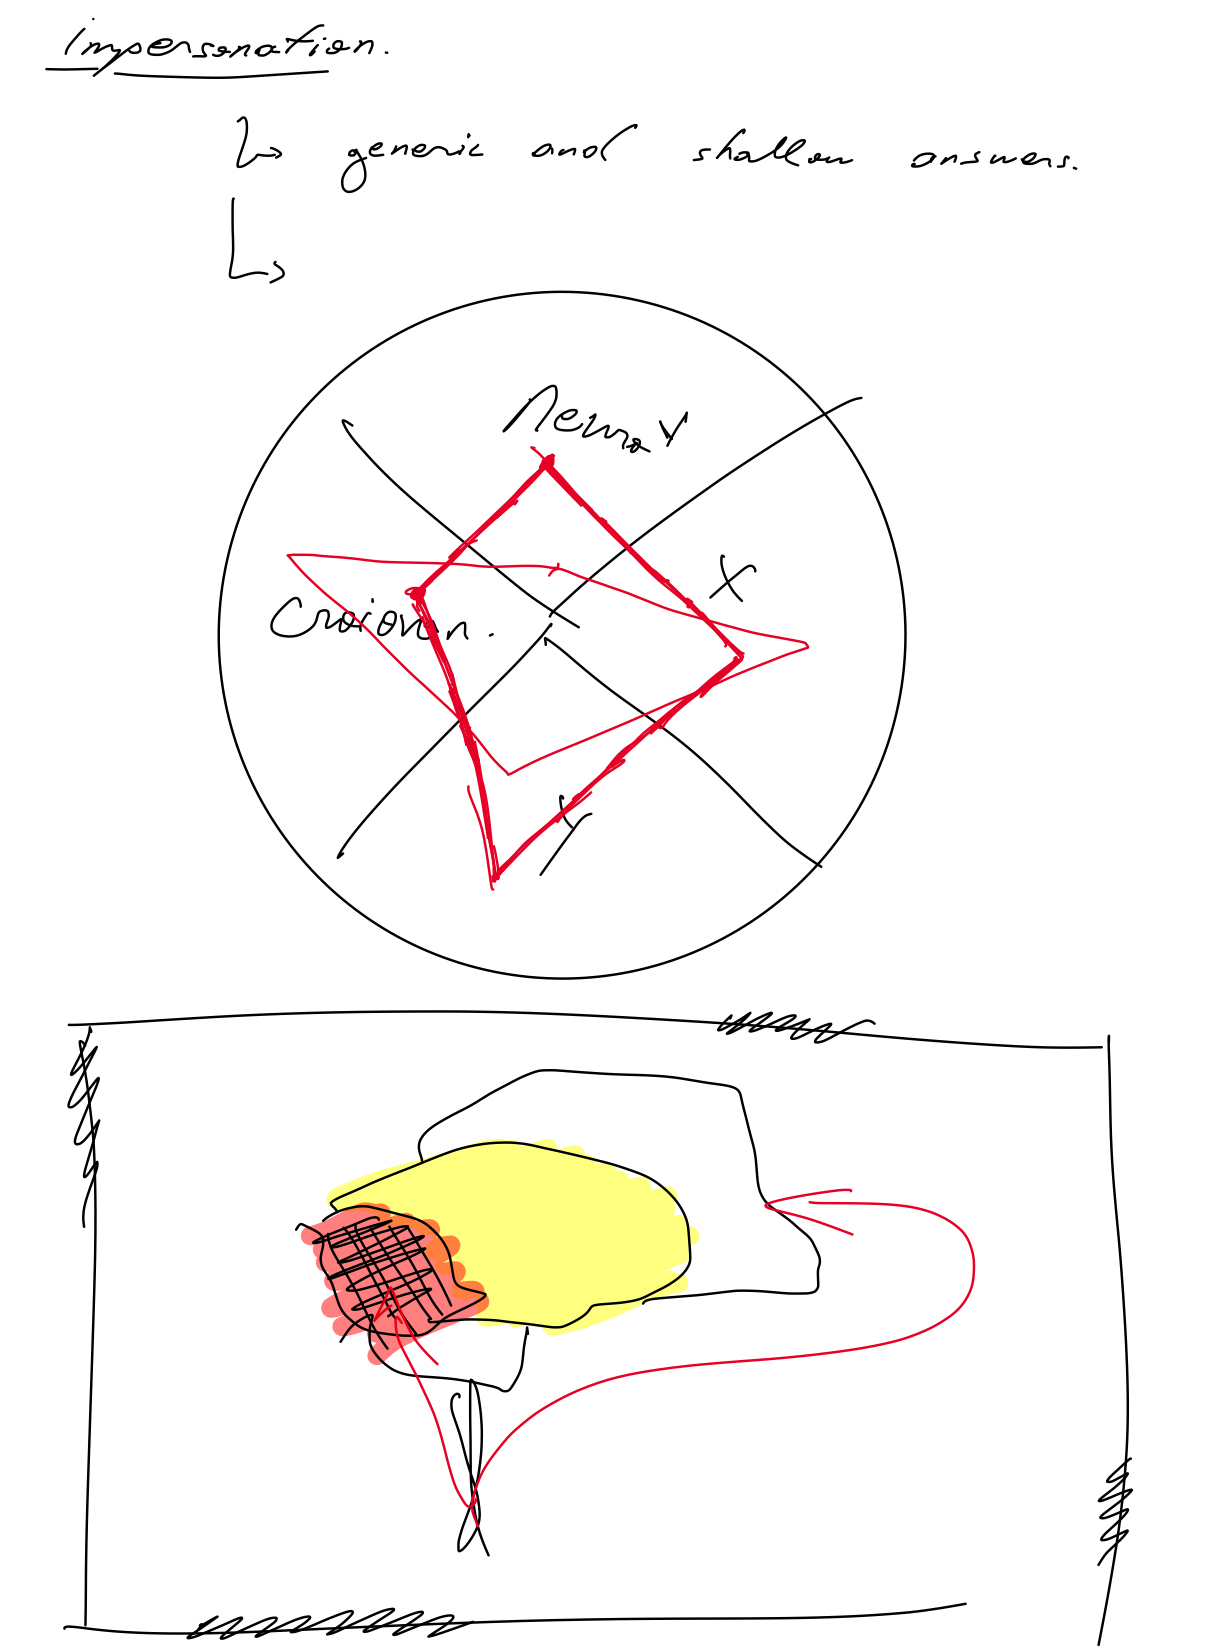 Impersonation.
generic and shallow answers.
Neuro
X
Y